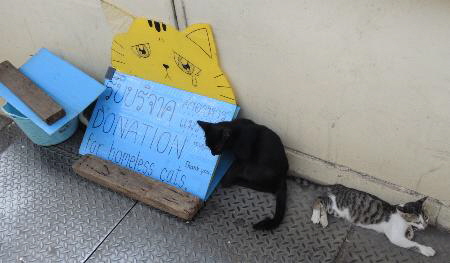 รับบริจาค
DONATION
for homeless cats.
Thank you